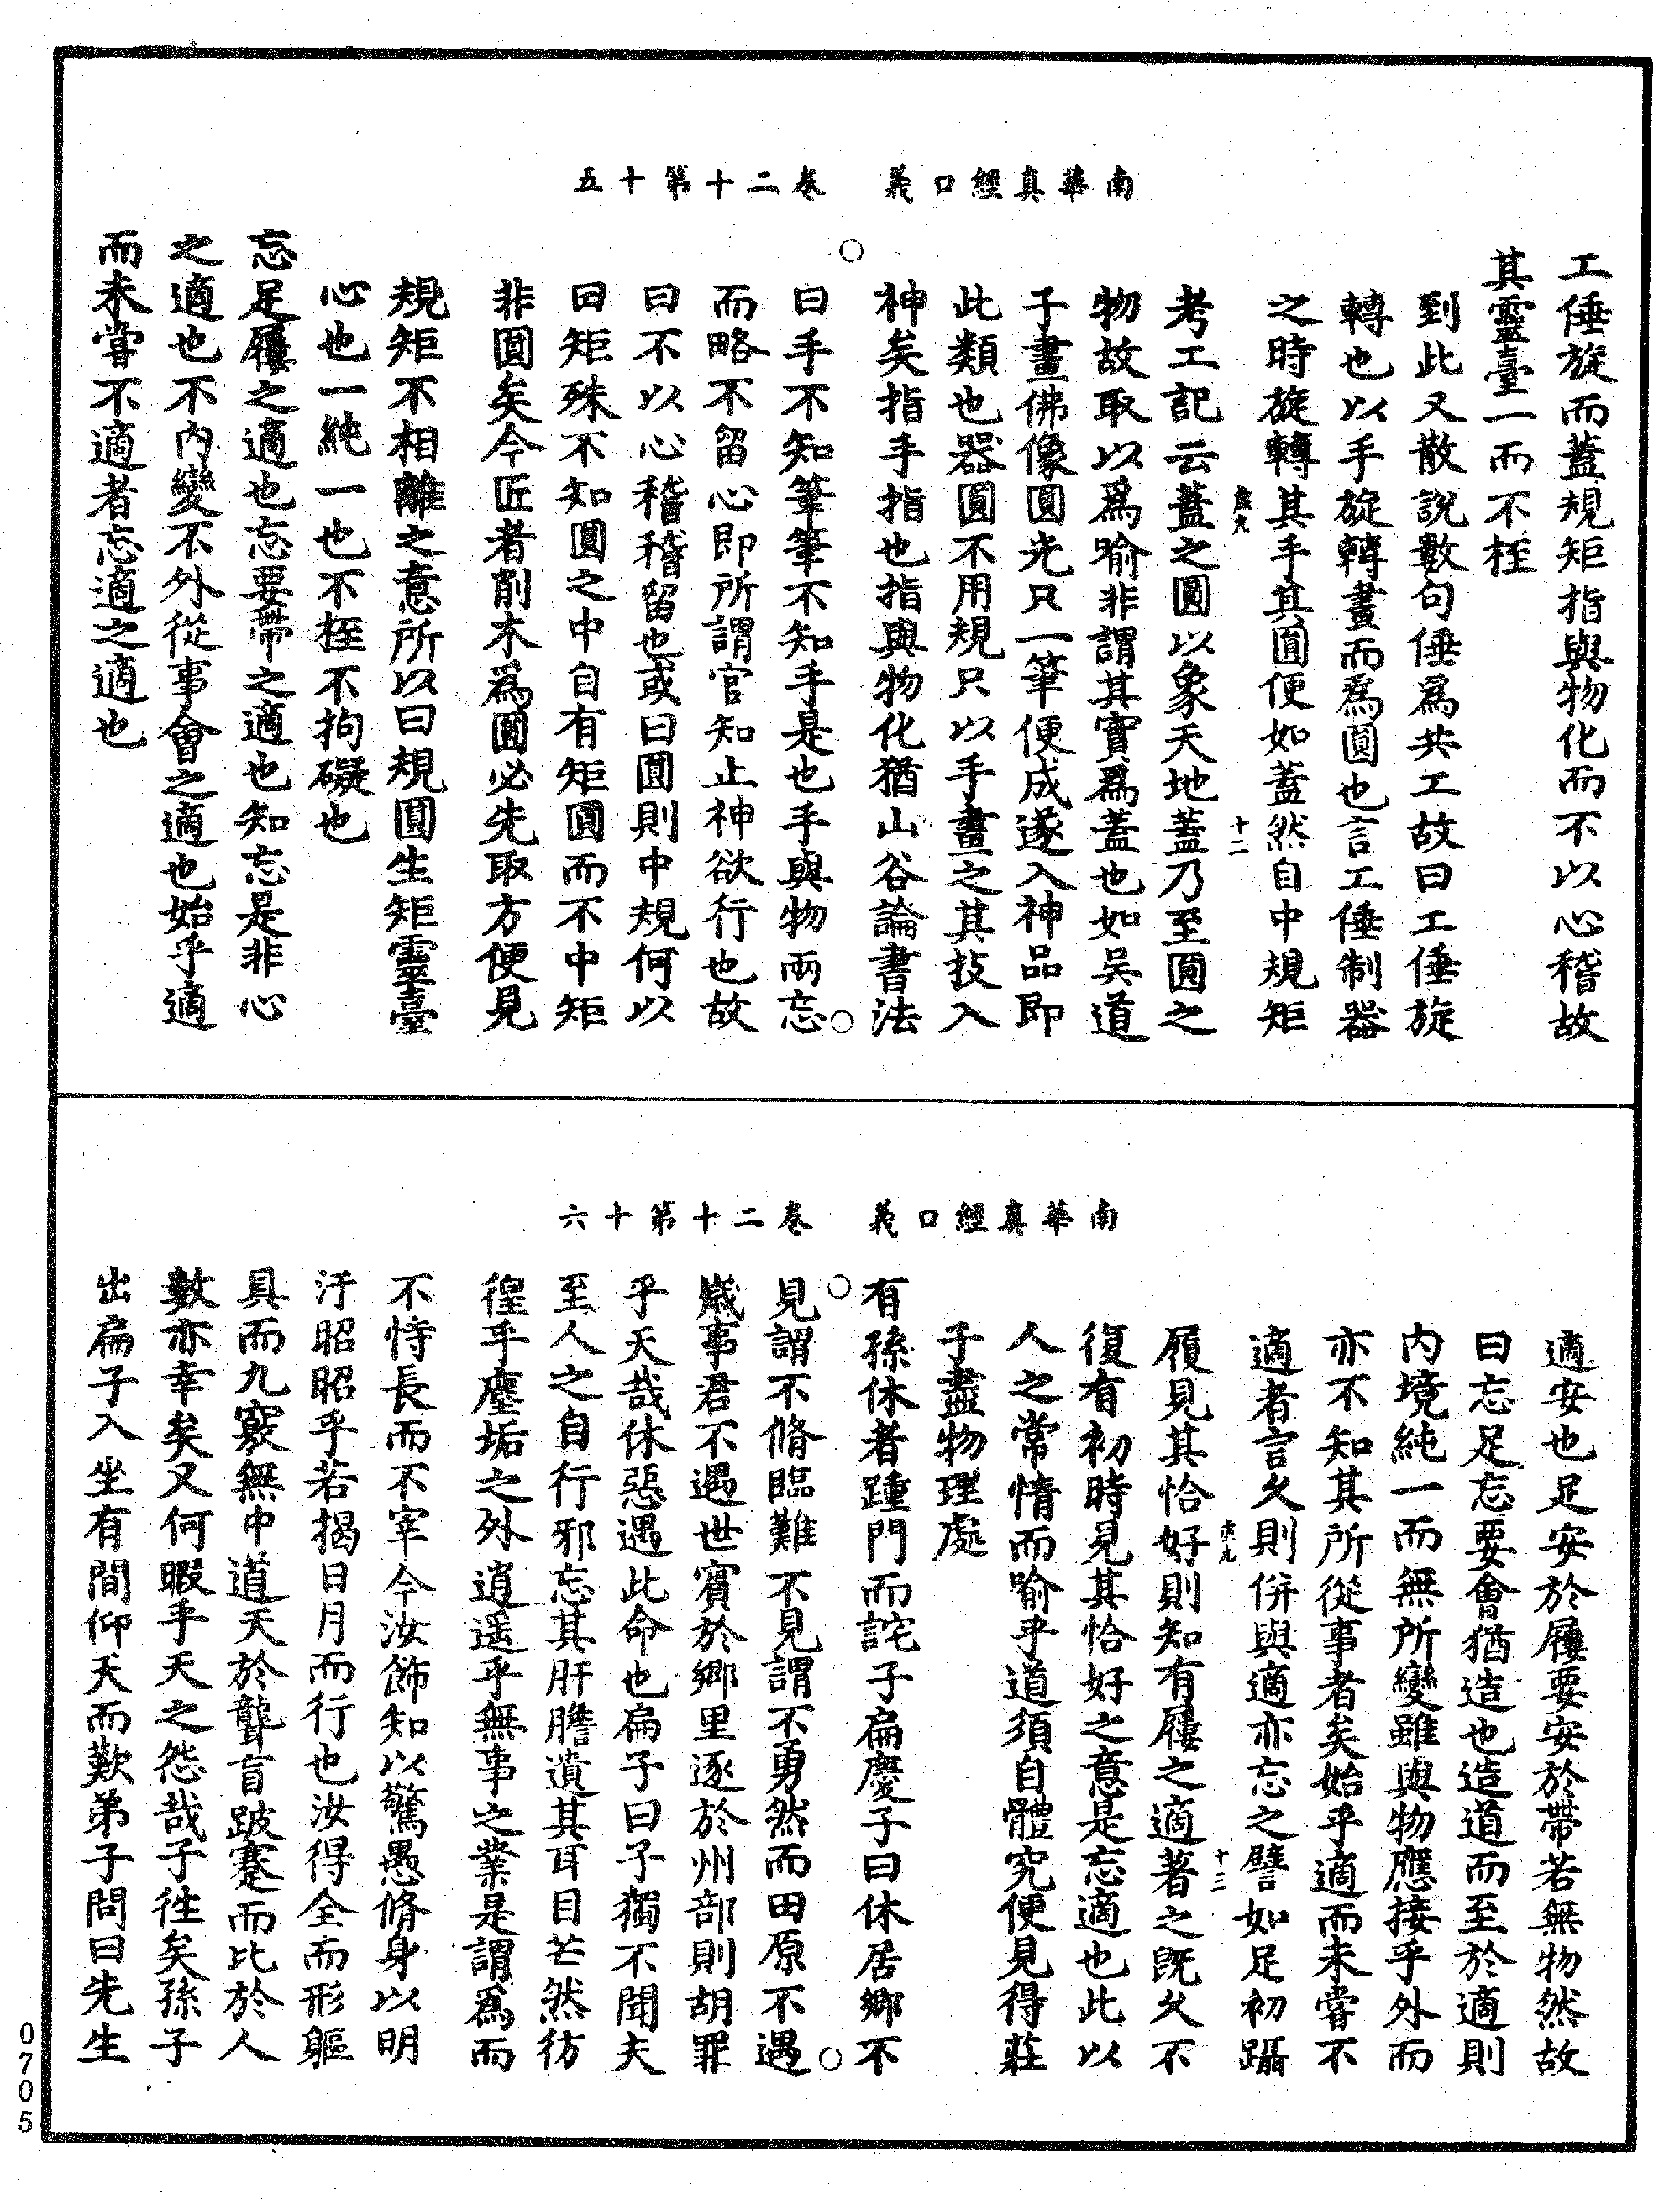 南華真經口義　卷二十第十五
工倕旋而蓋規矩指與物化而不以心稽故
其靈臺一而不桎
到此又散說數句倕爲共工故曰工倕旋
轉也以手旋轉畫而爲圓也言工倕制器
之時旋轉其手其圓便如蓋然自中規矩
十二
考工記云蓋之圓以象天地蓋乃至圓之
物故取以爲喻非謂其實爲蓋也如吳道
子畫佛像圓光只一筆便成遂入神品即
此類也器圓不用規只以手畫之其技入
神矣指手指也指與物化猶山谷論書法
曰手不知筆筆不知手是也手與物兩忘
而略不留心即所謂官知止神欲行也故
曰不以心稽稽留也或曰圓則中規何以
曰矩殊不知圓之中自有矩圓而不中矩
非圓矣今匠者削木爲圓必先取方便見
規矩不相離之意所以曰規圓生矩靈臺
心也一純一也不桎不拘礙也
忘足屨之適也忘要帶之適也知忘是非心
之適也不內變不外從事會之適也始乎適
而未嘗不適者忘適之適也
南華真經口義　卷二十第十六
適安也足安於屨要安於帶若無物然故
曰忘足忘要會猶造也造道而至於適則
內境純一而無所變雖與物應接乎外而
亦不知其所從事者矣始乎適而未嘗不
適者言久則併與適亦忘之譬如足初躡
十三
履見其恰好則知有屨之適著之既久不
復有初時見其恰好之意是忘適也此以
人之常情而喻乎道須自體究便見得莊
子盡物理處
有孫休者踵門而詫子扁慶子曰休居鄉不
見謂不脩臨難不見謂不勇然而田原不遇
歲事君不遇世賓於鄉里逐於州部則胡罪
乎天哉休惡遇此命也扁子曰子獨不聞夫
至人之自行邪忘其肝膽遺其耳目芒然彷
徨乎塵垢之外逍遥乎無事之業是謂爲而
不恃長而不宰今汝飾知以驚愚脩身以明
汙昭昭乎若揭日月而行也汝得全而形軀
具而九竅無中道夭於聾盲跛蹇而比於人
數亦幸矣又何暇乎天之怨哉子徃矣孫子
出扁子入坐有間仰天而歎弟子問曰先生
0705